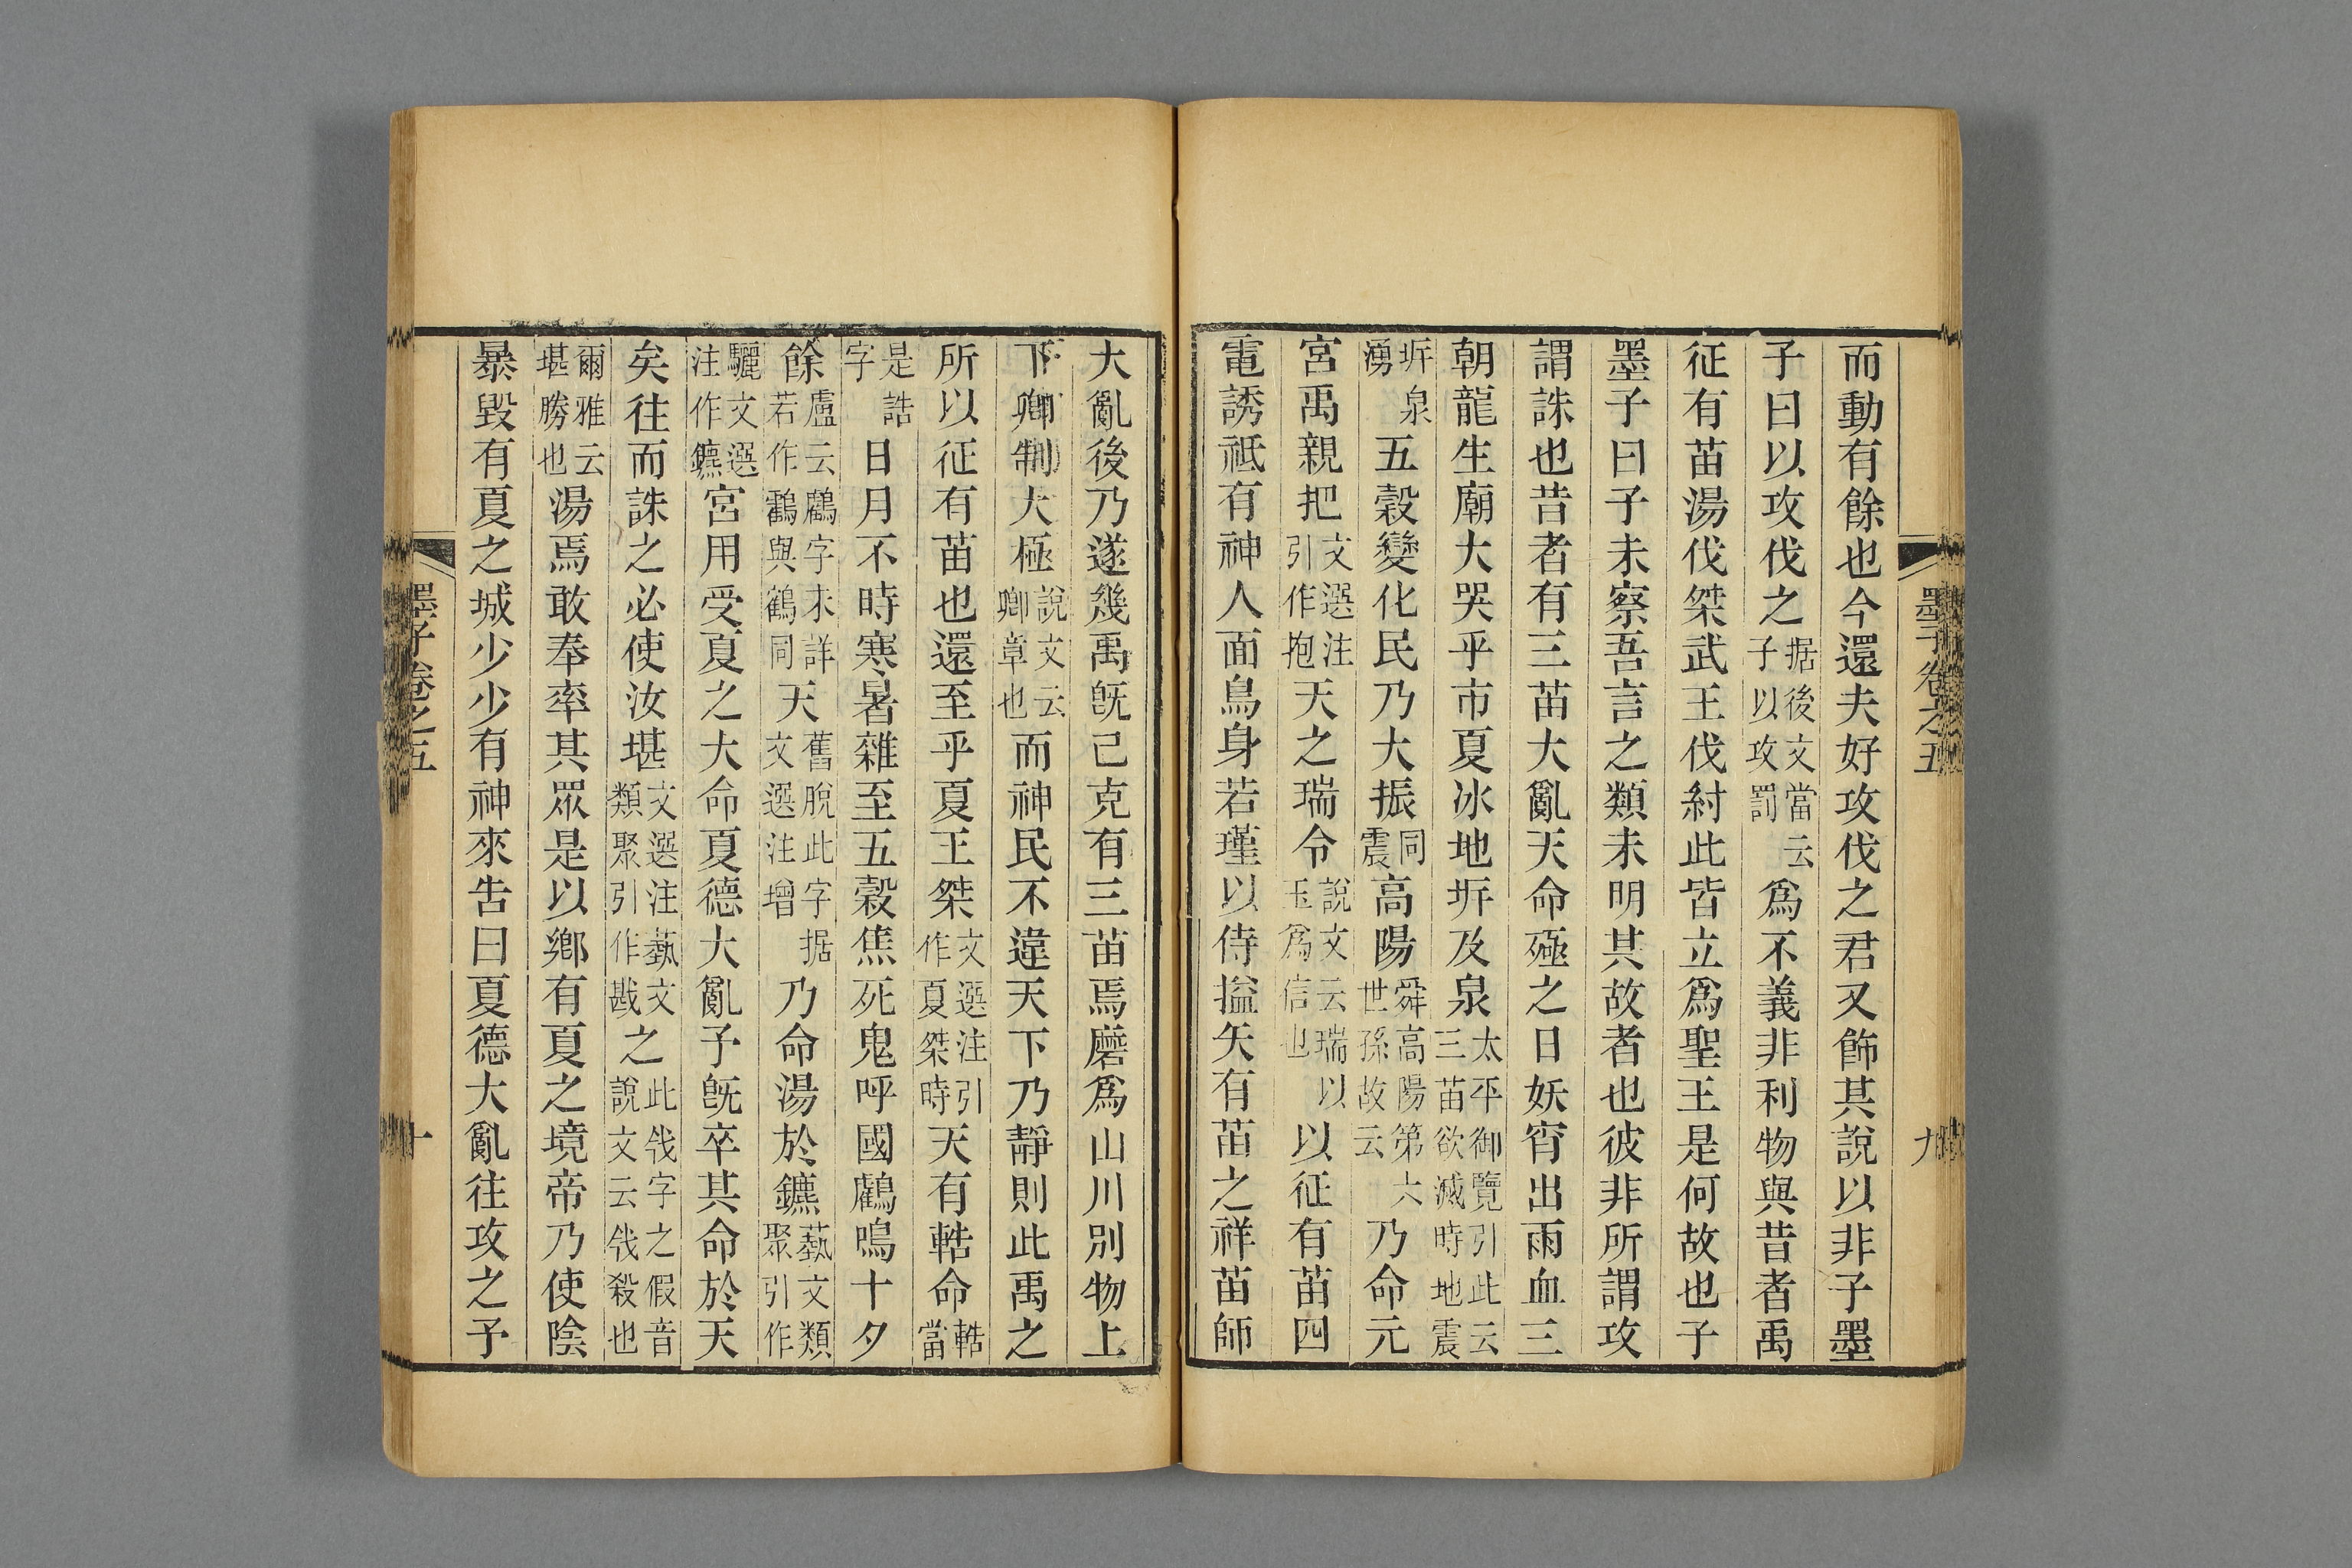 墨子卷之五
九
而動有餘也今還夫好攻伐之君又飾其說以非子墨
子曰以攻伐之据後文當云子以攻罰爲不義非利物與昔者禹
征有苗湯伐桀武王伐紂此皆立爲聖王是何故也子
墨子曰子未察吾言之類未明其故者也彼非所謂攻
謂誅也昔者有三苗大亂天命殛之日妖宵出雨血三
朝龍生廟大哭乎市夏冰地坼及泉太平御覽引此云三苗欲滅時地震
坼泉湧五穀變化民乃大振同震高陽舜高陽第六世孫故云乃命元
宮禹親把文選注引作抱天之瑞令說文云瑞以玉爲信也以征有苗四
電誘祇有神人面鳥身若瑾以侍搤矢有苗之祥苗師
大亂後乃遂幾禹旣已克有三苗焉磨爲山川別物上
下卿制大極說文云卿章也而神民不違天下乃靜則此禹之
所以征有苗也還至乎夏王桀文選注引作夏桀時天有䡘命䡘當
是誥字日月不時寒暑雜至五穀焦死鬼呼國鸕鳴十夕
餘盧云鸖字未詳若作鸖與鶴同天舊脫此字据文選注增乃命湯於鑣藝文類聚引作
驪文選注作鑣宮用受夏之大命夏德大亂予旣卒其命於天
矣往而誅之必使汝堪文選注藝文類聚引作戡之此戗字之假音說文云戗殺也
爾雅云堪勝也湯焉敢奉率其眾是以鄉有夏之境帝乃使陰
暴毀有夏之城少少有神來告曰夏德大亂往攻之予
墨子卷之五
十